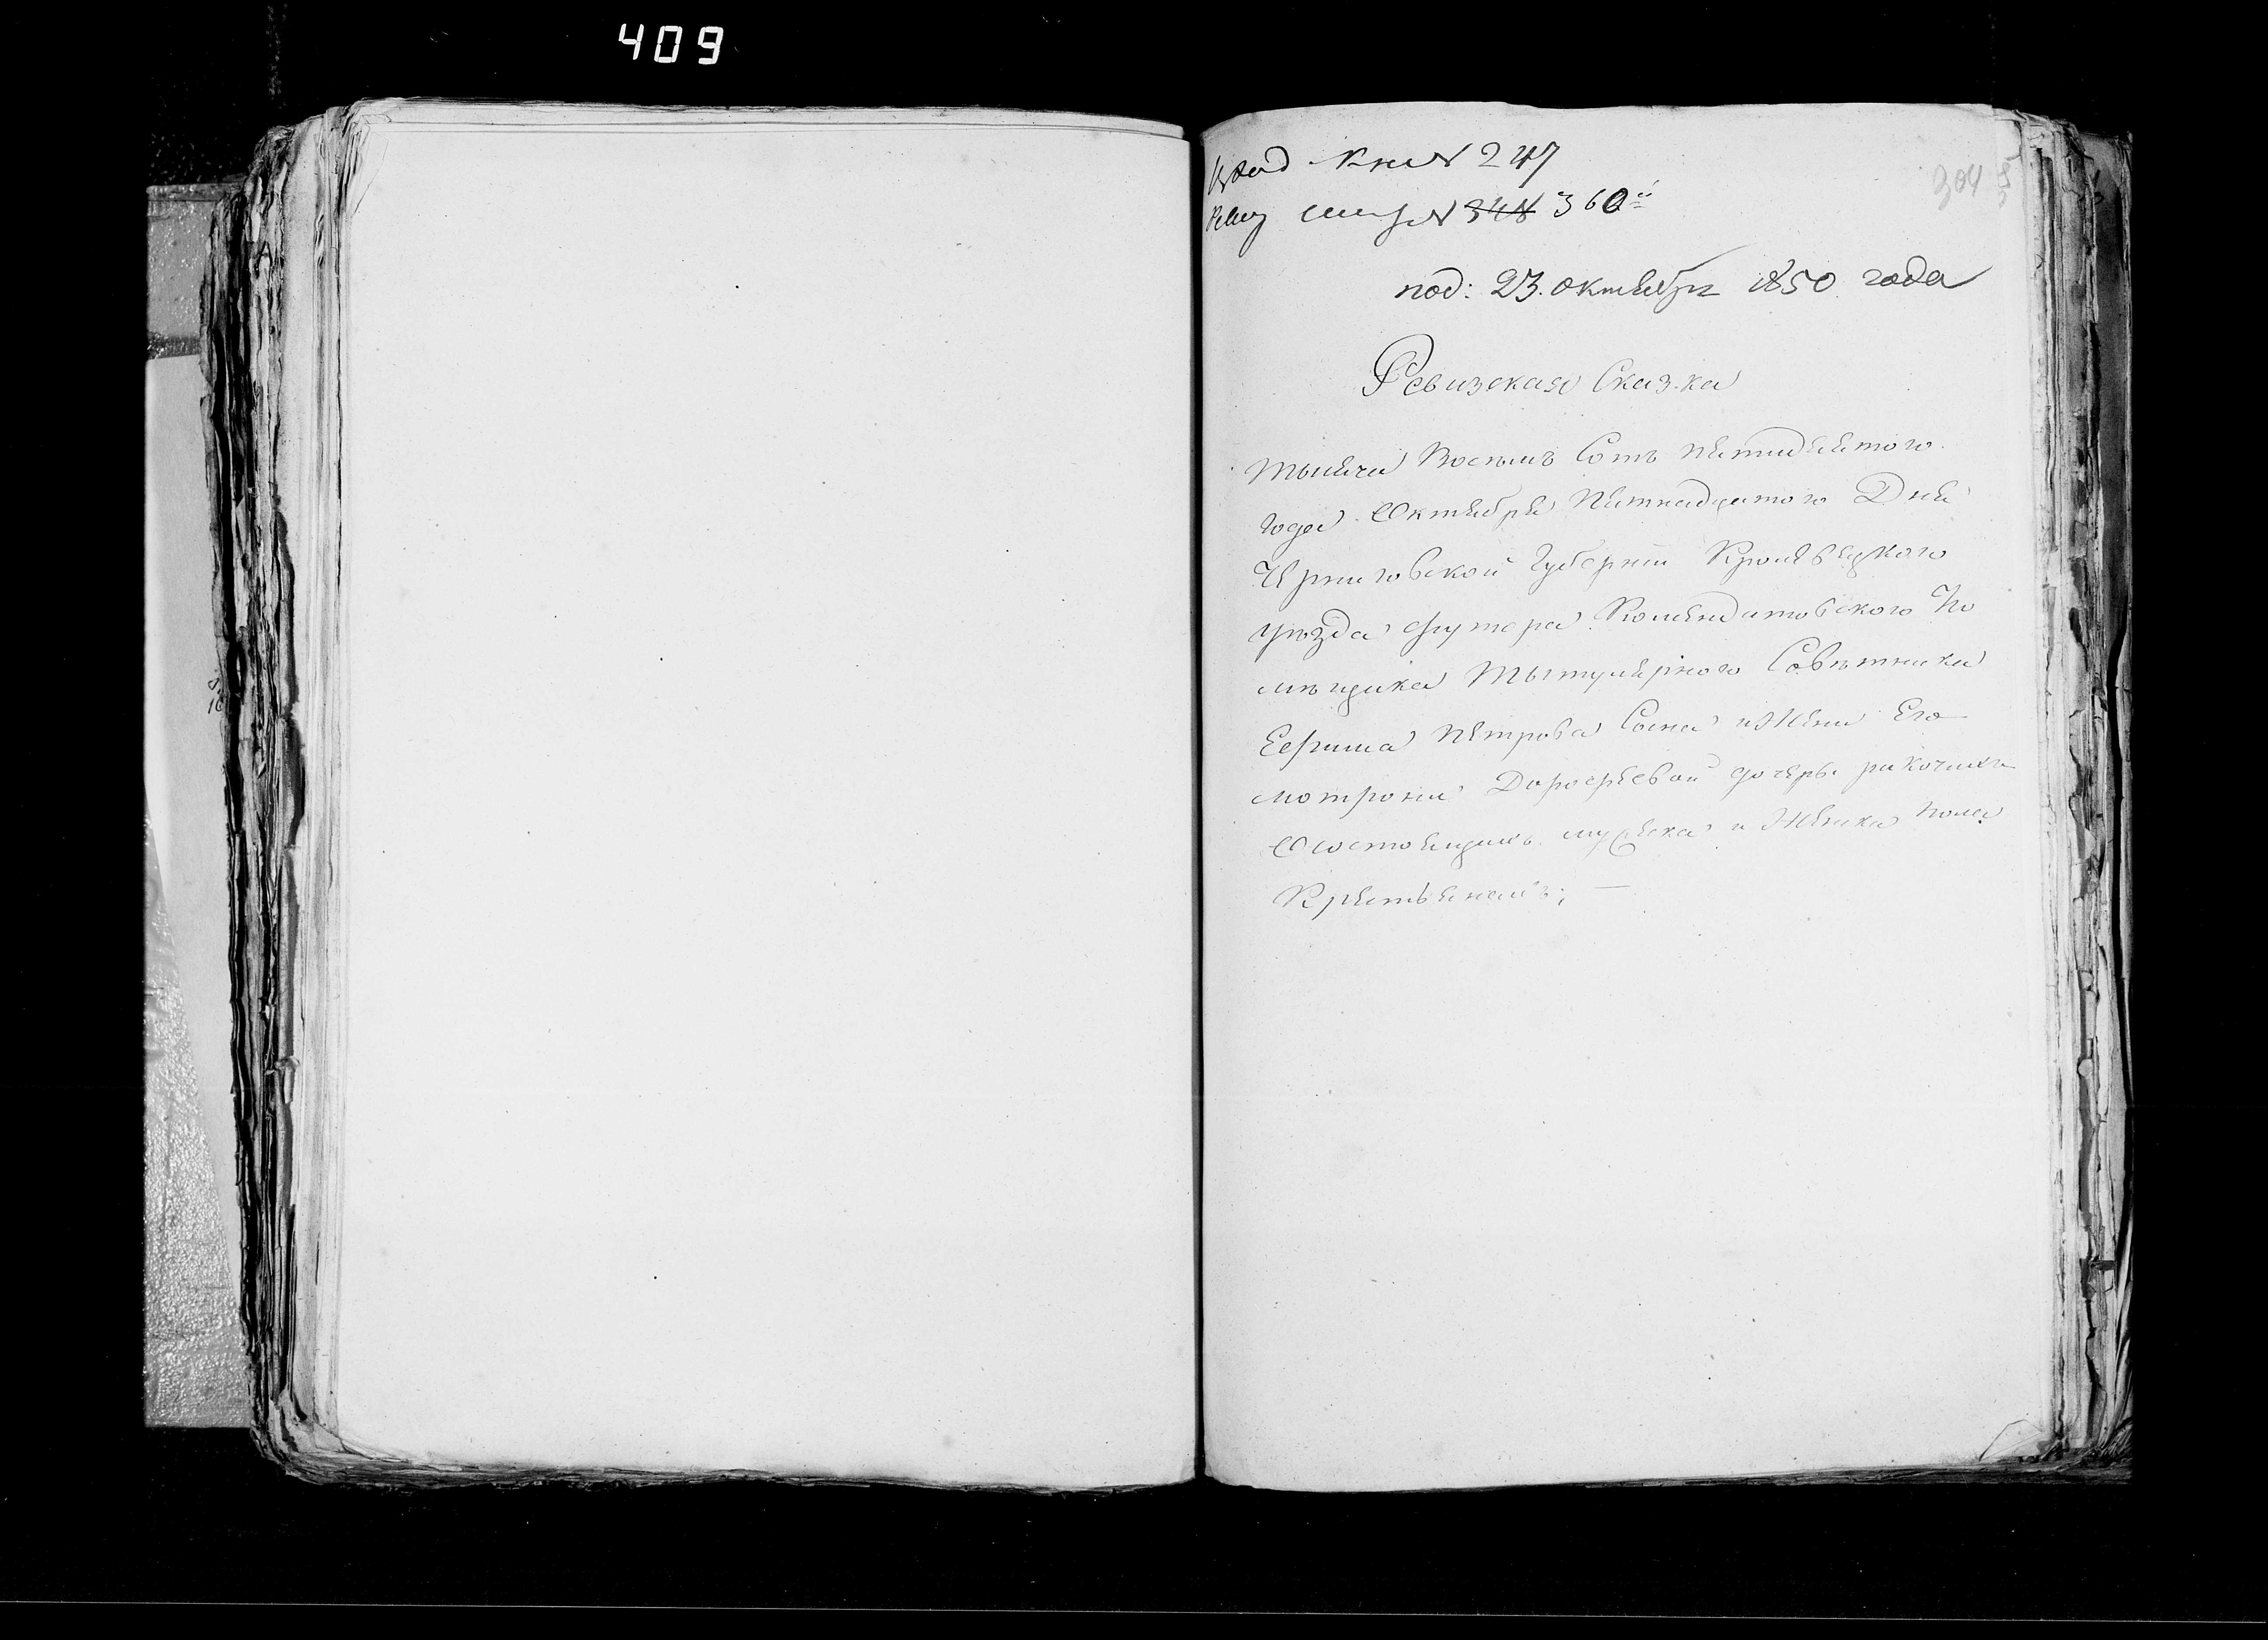 409
Вход Кни № 247
Реви спис № 348 360й
304
под: 23. октября 1850 года
Ревизская Сказка
Тысяча Восемъ Сотъ пятидесятого
года Октября Пятнадцатого Дня
Черниговской Губернии Кролевецкого
уезда футора Комендатовского По
мѣщика Тытулярного Совѣтника
Ефима Петрова Сына и Жени Его
мотрони Дорофеевой дочери
О состоящихъ мужска и Женска пола
Крестьянахъ; —